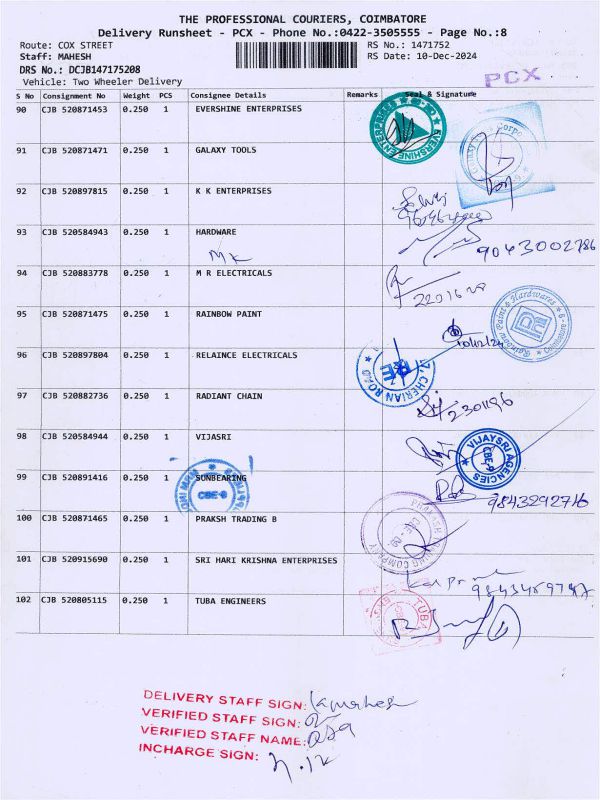 THE PROFESSIONAL COURIERS, COIMBATORE
Delivery Runsheet - PCX - Phone No.:0422-3505555 - Page No.:8
Route: COX STREET RS No.: 1471752
Staff: MAHESH RS Date: 10-Dec-2024
DRS No.: DCJB147175208
Vehicle: Two Wheeler Delivery
PCX
S No Consignment No Weight PCS Consignee Details Remarks Seal & Signature
90 CJB 520871453 0.250 1 EVERSHINE ENTERPRISES
EVERSHINE ENTERPRISES
91 CJB 520871471 0.250 1 GALAXY TOOLS
92 CJB 520897815 0.250 1 K K ENTERPRISES
93 CJB 520584943 0.250 1 HARDWARE
MK
9043002786
94 CJB 520883778 0.250 1 M R ELECTRICALS
95 CJB 520871475 0.250 1 RAINBOW PAINT
Rainbow Paint & Hardwares
10/12/24
96 CJB 520897804 0.250 1 RELAINCE ELECTRICALS
CHERIAN ROAD
97 CJB 520882736 0.250 1 RADIANT CHAIN
2301196
98 CJB 520584944 0.250 1 VIJASRI
VIJAYSRI AGENCIES
CBE-9
99 CJB 520891416 0.250 1 SUNBEARING
CBE-9
9843292716
100 CJB 520871465 0.250 1 PRAKSH TRADING B
101 CJB 520915690 0.250 1 SRI HARI KRISHNA ENTERPRISES
102 CJB 520805115 0.250 1 TUBA ENGINEERS
TUBA
DELIVERY STAFF SIGN:
VERIFIED STAFF SIGN:
VERIFIED STAFF NAME:
INCHARGE SIGN: